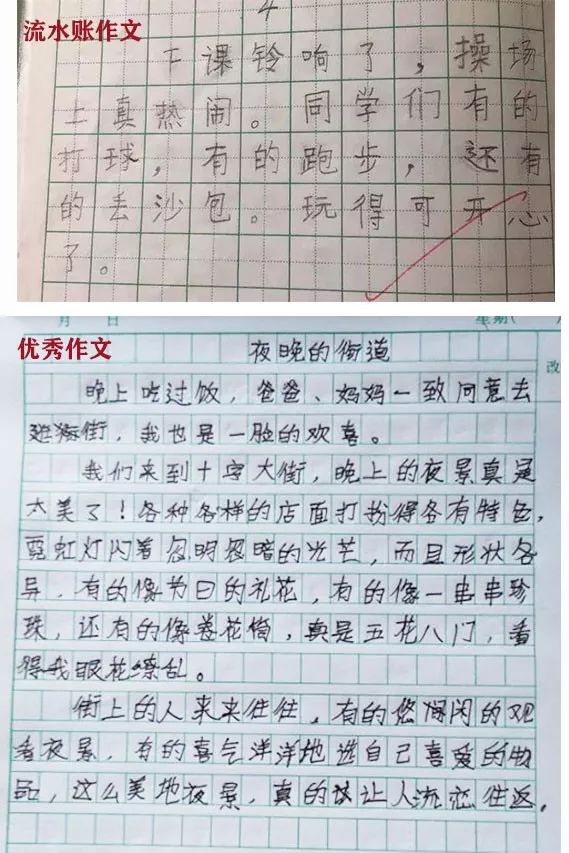 4
流水账作文
下课铃响了，操场
上真热闹。同学们有的
打球，有的跑步，还有
的丢沙包。玩得可开心
了。
月 日 星期(
优秀作文
改
夜晚的街道
晚上吃过饭，爸爸、妈妈一致同意去
街，我也是一脸的欢喜。
我们来到十字大街，晚上的夜景真是
太美了！各种各样的店面打扮得各有特色，
霓虹灯闪着忽明忽暗的光芒，而且形状各
异，有的像节日的礼花，有的像一串串珍
珠，还有的像卷花筒，真是五花八门，看
得我眼花缭乱。
街上的人来来往往，有的悠闲闲的观
看夜景，有的喜气洋洋地选自己喜爱的物
品，这么美地夜景，真的该让人流恋往返。